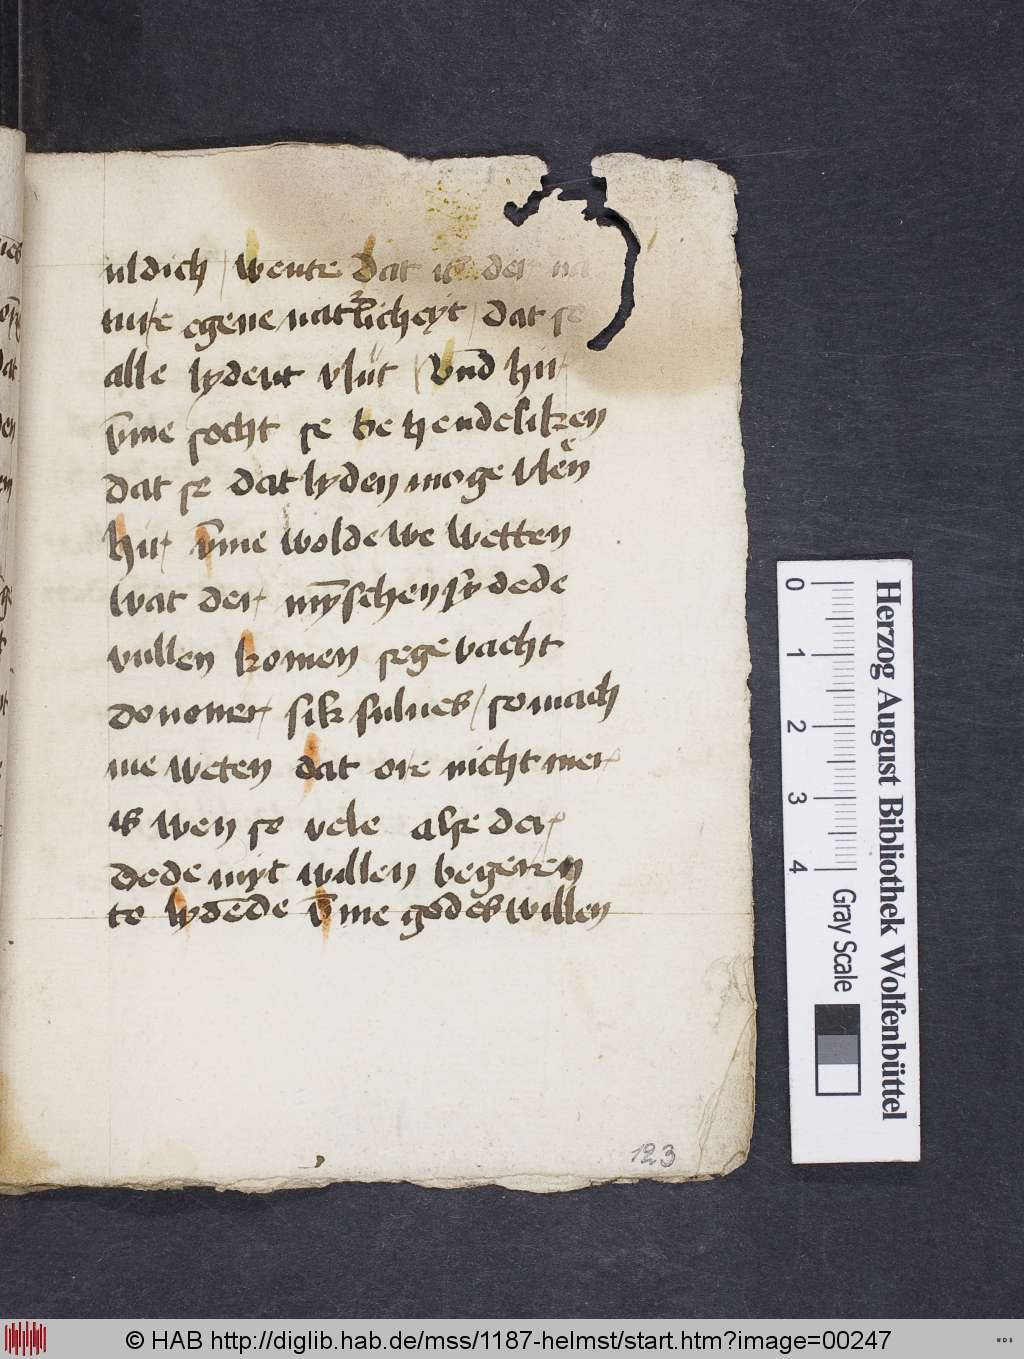 uldich / wente dat is der na
ture egene / natᵉlicheyt / dat se
alle lydent vlut / Vn̄d hir
v̄me socht se be hendeliken
dat se dat lyden moge vlen
hir v̄me wolde we wetten
wat der mȳschen sy dede
vullen komen sege vacht
do uouer sik sulues / so mach
me weten dat ore nicht mer
is wen se vele alse der
dede myt willen begeren
to lydēde v̄me godes willen
123
Herzog August Bibliothek Wolfenbüttel
0 1 2 3 4 Gray Scale
© HAB http://diglib.hab.de/mss/1187-helmst/start.htm?image=00247